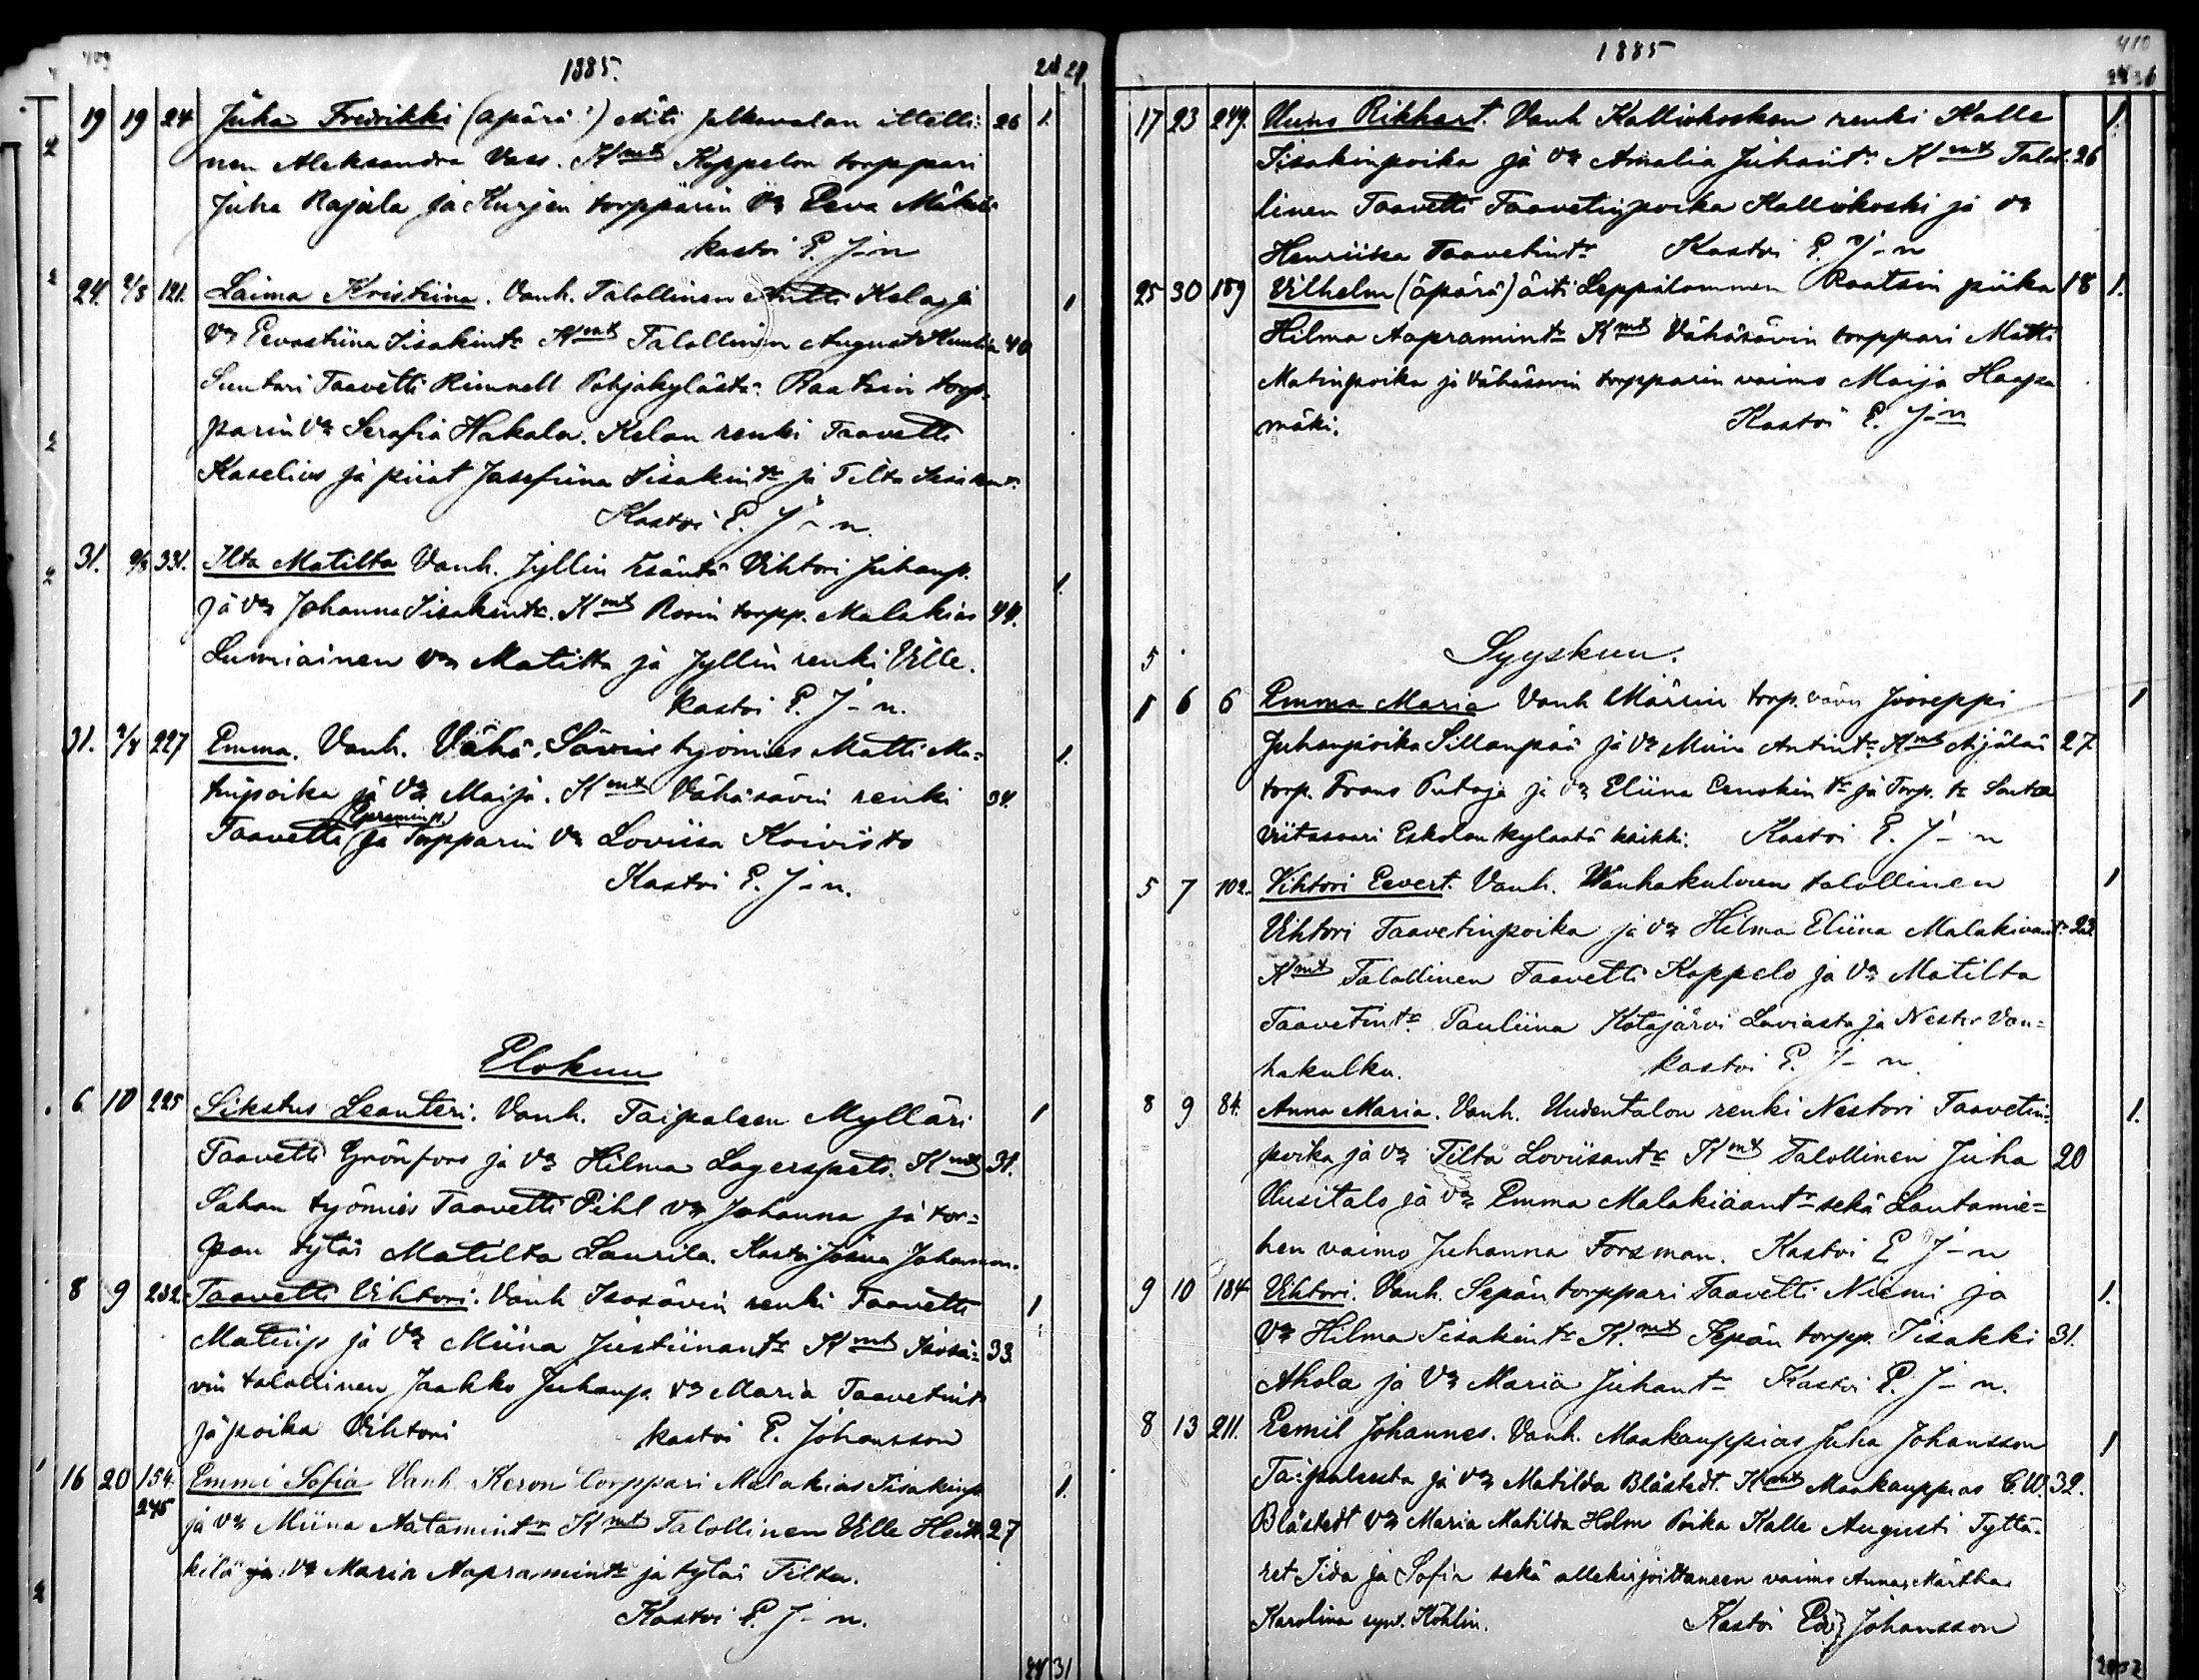 409
1885.
28 29
19 19 24 Juha Fredrikki (äpärä) äiti Jalkavalan itselli- 26 1.
nen Aleksandra K mt Koppelon torppari
Juha Rajala ja Kurjen torpparin vo Eeva Mäkelä
kastoi E. J-n
24. 2/8 121. Laima Kristiina. Vanh. Talollinen Antti Kela ja 1
vo Eevastiina Iisakintr K mt Talollinen August 40
Suutari Taavetti Rimnell Pohjakylästä. Raatsin torp-
parin vo Serafia Hakala. Kelan renki Taavetti
Kaselius ja piiat Josefiina Iisakintr ja Tilta
Kastoi E. J-n.
31. 9/8 331. Ilta Matilta Vanh. Jyllin Isäntä Vihtori Juhanp. 1.
ja vo Johanna Iisakintr. K mt Rosin torpp. Malakias 44.
Lumiainen vo Matilta ja Jyllin renki Ville.
kastoi E. J-n.
31. 2/8 227 Emma. Vanh. Vähä. Sävin työmies Matti Ma- 1.
tinpoika ja vo Maija. K mt Vähäsävin renki 34.
Epraminp.
Taavetti ja Torpparin vo Loviisa Koivisto
Kastoi E. J-n.
Elokuu
6. 10 225 Sikstus Leanteri. Vanh. Taipaleen Mylläri 1
Taavetti Grönfors ja vo Hilma Lagerspets. K mt 31.
Sahan työmies Taavetti Pihl vo Johanna ja tor-
pan tytär Matilta Laurila. Kastoi Josua Johansson.
8 9 232. Taavetti Vihtori. Vanh Isosävin renki Taavetti 1
Matinp ja vo Miina Justiinantr K mt Isosä- 33.
vin talollinen Jaakko Juhanp. vo Maria Taavetintr
ja poika Vihtori kastoi E. Johansson
16 20 154. Emmi Sofia Vanh. Keron torppari Malakias Iisakinp 1.
245 ja vo Miina Aatamintr K mt Talollinen Ville Heik- 27
kilä ja vo Maria Aapramintr ja tytär Tilta.
Kastoi E. J-n.
28 31
410
1885
17 23 249. Uuno Rikhart. Vanh Kalliokosken renki Kalle 1.
Iisakinpoika ja vo Amalia Juhantr K mt Talol- 26
linen Taavetti Taavetinpoika Kalliokoski ja vo
Henriika Taavetintr Kastoi E. J-n
25 30 189 Vilhelm (äpärä) äiti Leppilammen Raatsin piika 18 1.
Hilma Aapramintr K mt Vähäsävin torppari Matti
Matinpoika ja Vähäsävin torpparin vaimo Maija Haapa
mäki. Kastoi E. J-n
Syyskuu.
1 6 6 Emma Maria Vanh Märrin torp. vävy Jooseppi 1
Juhanpoika Sillanpää ja vo Miin Antintr K mt Äijälän 27
torp. Frans Putaja ja vo Eliina Eenokintr ja Torp. tr Santra
Viitasaari Eskolan kylästä kaikki. Kastoi E. J-n
5 7 102. Vihtori Eevert. Vanh. Wanhakulvun talollinen 1
Vihtori Taavetinpoika ja vo Hilma Eliina Malakiaantr 22.
K mt Talollinen Taavetti Koppelo ja vo Matilta
Taavetintr Pauliina Kotajärvi Laviasta ja Nestor Van-
hakulku. kastoi E. J-n.
8 9 84. Anna Maria. Vanh. Uudentalon renki Nestori Taavetin- 1.
poika ja vo Tilta Loviisantr K mt Talollinen Juha 20
Uusitalo ja vo Emma Malakiaantr sekä Lautamie-
hen vaimo Juhanna Forsman. Kastoi E J-n
9 10 184 Vihtori. Vanh. Sepän torppari Taavetti Niemi ja 1.
vo Hilma Iisakintr K. mt Sepän torpp. Iisakki 31.
Ahola ja vo Maria Juhantr Kastoi E. J-n.
8 13 211. Eemil Johannes. Vanh. Maakauppias Juha Johansson 1
Taipaleesta ja vo Matilda Blåstedt. K mt Maakauppias C.W. 32.
Blåstedt vo Maria Matilda Holm Poika Kalle Augusti Tyttä-
ret Iida ja Sofia sekä allekirjoittaneen vaimo Anna Märtha
Karolina synt. Köhlin. Kastoi Johansson